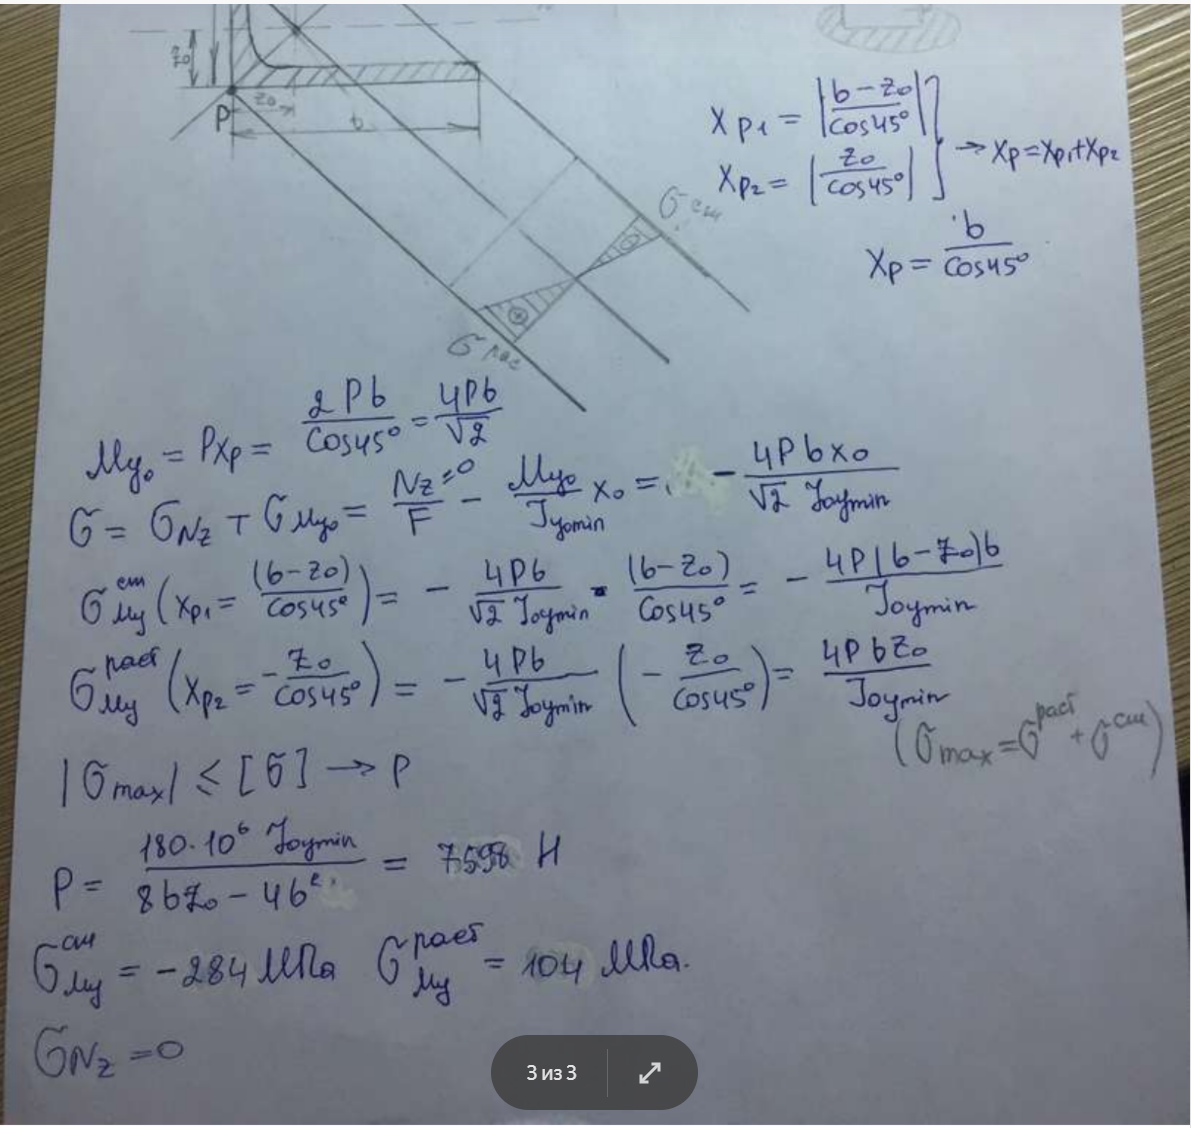 z₀
z₀
P
b
X P1 = |(b−z₀)/cos45°|
X P2 = |z₀/cos45°| → Xp=Xp₁+Xp₂
Xp = b/cos45°
σ сж
σ рас
My₀ = PXp = 2Pb/cos45° = 4Pb/√2
σ = σNz + σMy₀ = Nz⁼⁰/F − My₀/Jy₀min x₀ = − 4Pbx₀/√2 J₀ymin
σ сж My (xp₁ = (b−z₀)/cos45°) = − 4Pb/√2 J₀ymin · (b−z₀)/cos45° = − 4P(b−z₀)b/J₀ymin
σ раст My (xp₂ = −z₀/cos45°) = − 4Pb/√2 J₀ymin (− z₀/cos45°) = 4Pbz₀/J₀ymin
(σmax = σ раст + σ сж)
|σmax| ≤ [σ] → P
P = 180·10⁶ J₀ymin/8bz₀ − 4b² = 7598 Н
σ сж My = −284 МПа σ раст My = 104 МПа.
σNz = 0
3 из 3